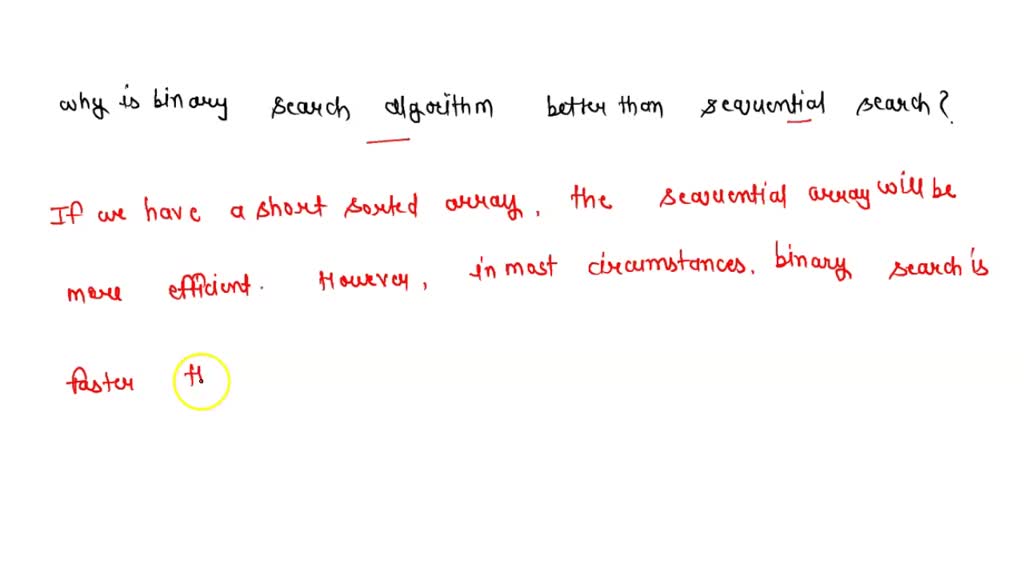 why is binary search algorithm better than sequential search?
If we have a short sorted array, the sequential array will be
more efficient. However, in most circumstances, binary search is
faster th